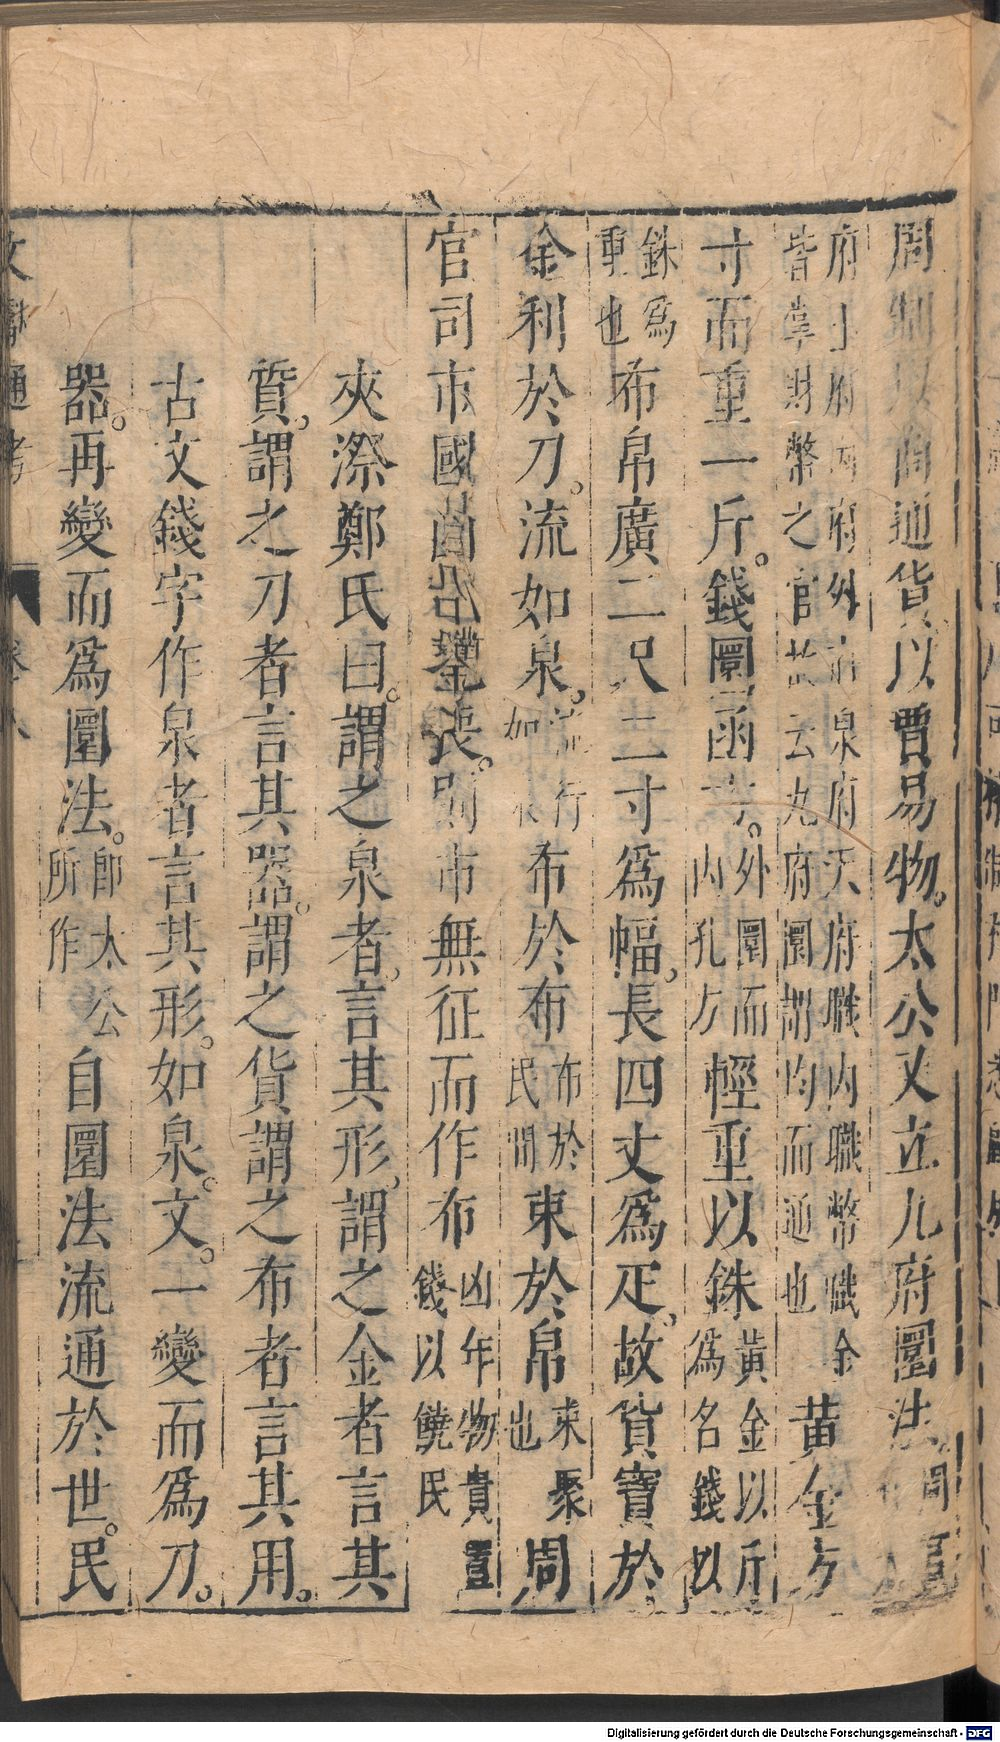 周制以商通貨以賈易物。太公又立九府圜法
府王府內府外府泉府天府職內職幣職金
皆掌財幣之官故云九府圜謂均而通也
黃金方
寸而重一斤。錢圜函方。
外圜而
內孔方
輕重以銖
黃金以斤
為名錢以
銖為
重也
布帛廣二尺二寸為幅，長四丈為疋，故貨寶於
金利於刀。流如泉。
流行
如
布於布
布於
民間
束於帛
束聚
也
周
官司市國凶荒札喪。則市無征而作布
凶年物貴置
錢以饒民
夾漈鄭氏曰。謂之泉者，言其形，謂之金者言其
質，謂之刀者言其器。謂之貨謂之布者言其用。
古文錢字作泉者言其形。如泉。文。一變而為刀。
器。再變而為圜法。
即太公
所作
自圜法流通於世。民
文獻通考
卷八
Digitalisierung gefördert durch die Deutsche Forschungsgemeinschaft - DFG